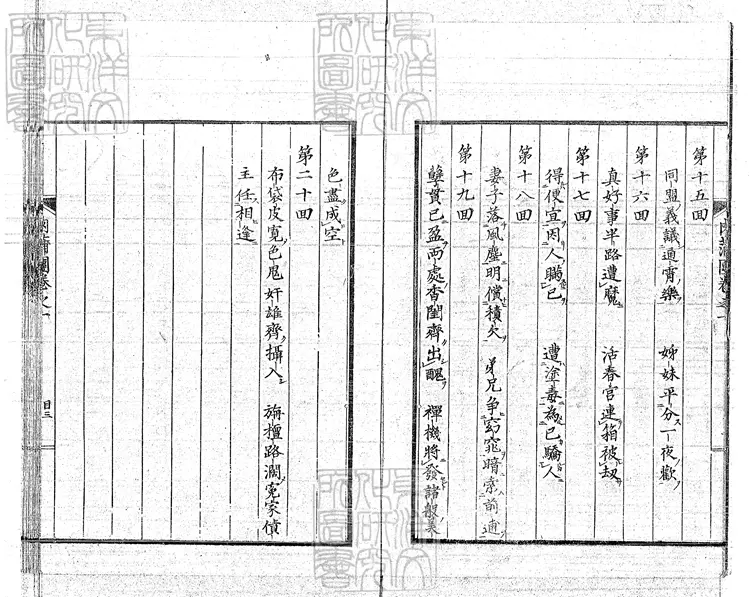 第十五回
同盟義議通宵樂 姊妹平分一夜歡
第十六回
真好事半路遭魔 活春宮連箱被劫
第十七回
得便宜因人瞞已 遭塗毒為已驕人
第十八回
妻子落風塵明償積欠 弟兄争窈窕暗索前逋
第十九回
孽貫已盈兩處香閨齊出醜 禪機將發諸般美
色盡成空
第二十回
布袋皮寬色鬼奸雄齊攝入 旃檀路濶冤家債
主任相逢
肉蒲團卷之一
目三
東洋文化研究所圖書